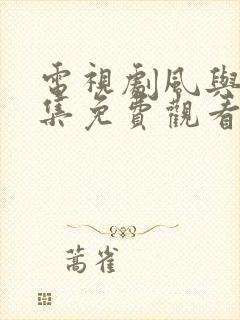 電視劇風與
集免費觀看
蒿雀